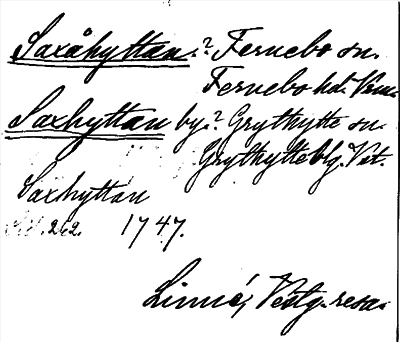 Saxåhyttan.? Fernebo sn.
Fernebo hd. Vrm.
Saxhyttan by.? Grythytte sn.
Grythytte blg. Vst.
Saxhyttan
262. 1747.
Linné, Västg. resa.